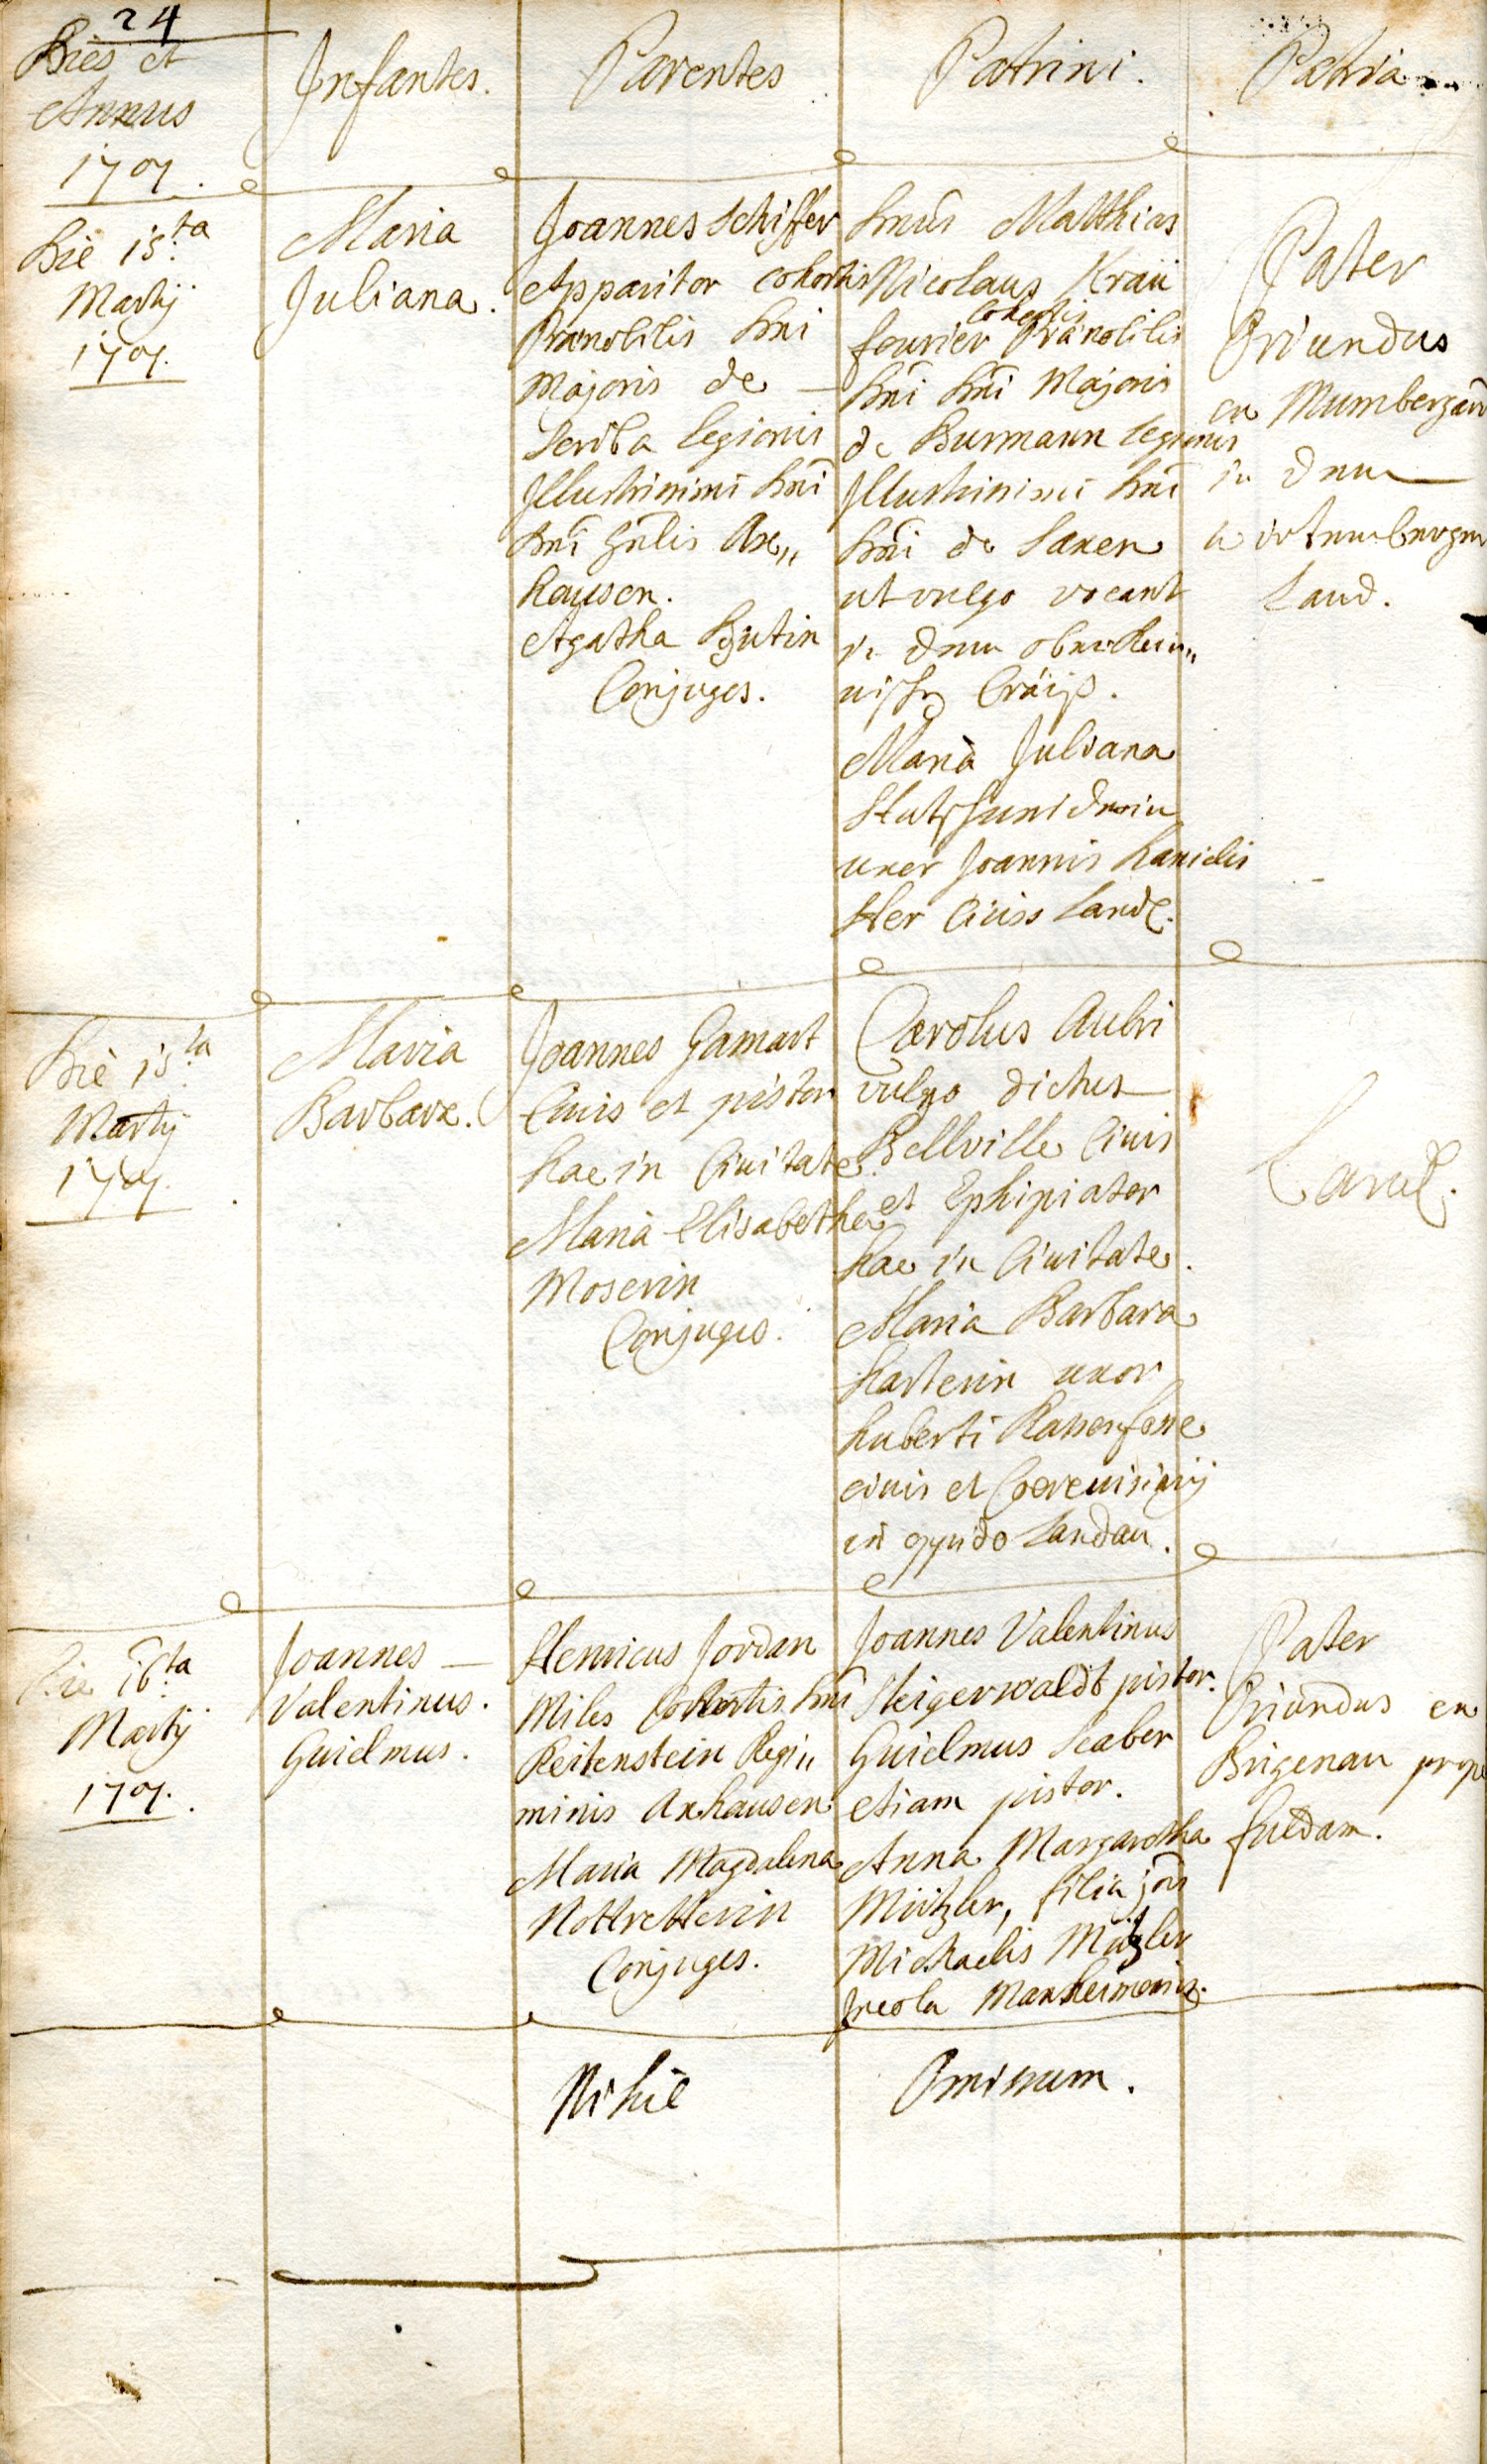 24
Dies et
Annus
1707.
Infantes.
Parentes
Patrini.
Patria
Die 15ta
Martij
1707.
Maria
Juliana.
Joannes Schiffer
Apparitor cohortis
Prænobilis Dni
Majoris de —
Scriba legionis
Illustrissimi Dni
Dni Gnlis Ax„
hausen.
Agatha
Conjuges.
Dnus Matthias
Nicolaus Kraü
cohortis
fourier Prænobilis
Dni Dni Majoris
de Burmann legionis
Illustrissimi Dni
Dni de Saxen
ut vulgo vocant
in dem oberRhei„
nischen Cräiß.
Maria Juliana
uxor Joannis Danielis
Her Civis Land.
Pater
Oriundus
ex
in dem
Wirtembergen
Land.
Die 15ta
Martij
1707.
Maria
Barbara.
Joannes Gamart
Civis et pistor
hac in Civitate.
Maria Elisabetha
Moserin
Conjuges.
Carolus Aubri
vulgo dictus
Bellville Civis
et Ephipiator
hac in Civitate.
Maria Barbara
Harterin uxor
Huberti
civis et Cerevisiarij
in oppido Landau.
Land.
Die 16ta
Martij
1707.
Joannes —
Valentinus.
Guielmus.
Henricus Jordan
Miles Cohortis Dni
Reitenstein Regi„
minis Axhausen
Maria Magdalena
Conjuges.
Joannes Valentinus
Steigerwaldt pistor.
Guielmus Seaber
etiam pistor.
Anna Margaretha
Mützler, filia jois
Michaelis Mützler
Incola Manheimensis.
Pater
Oriundus ex
Brigenau prope
fuldam.
Nihil
Omissum.